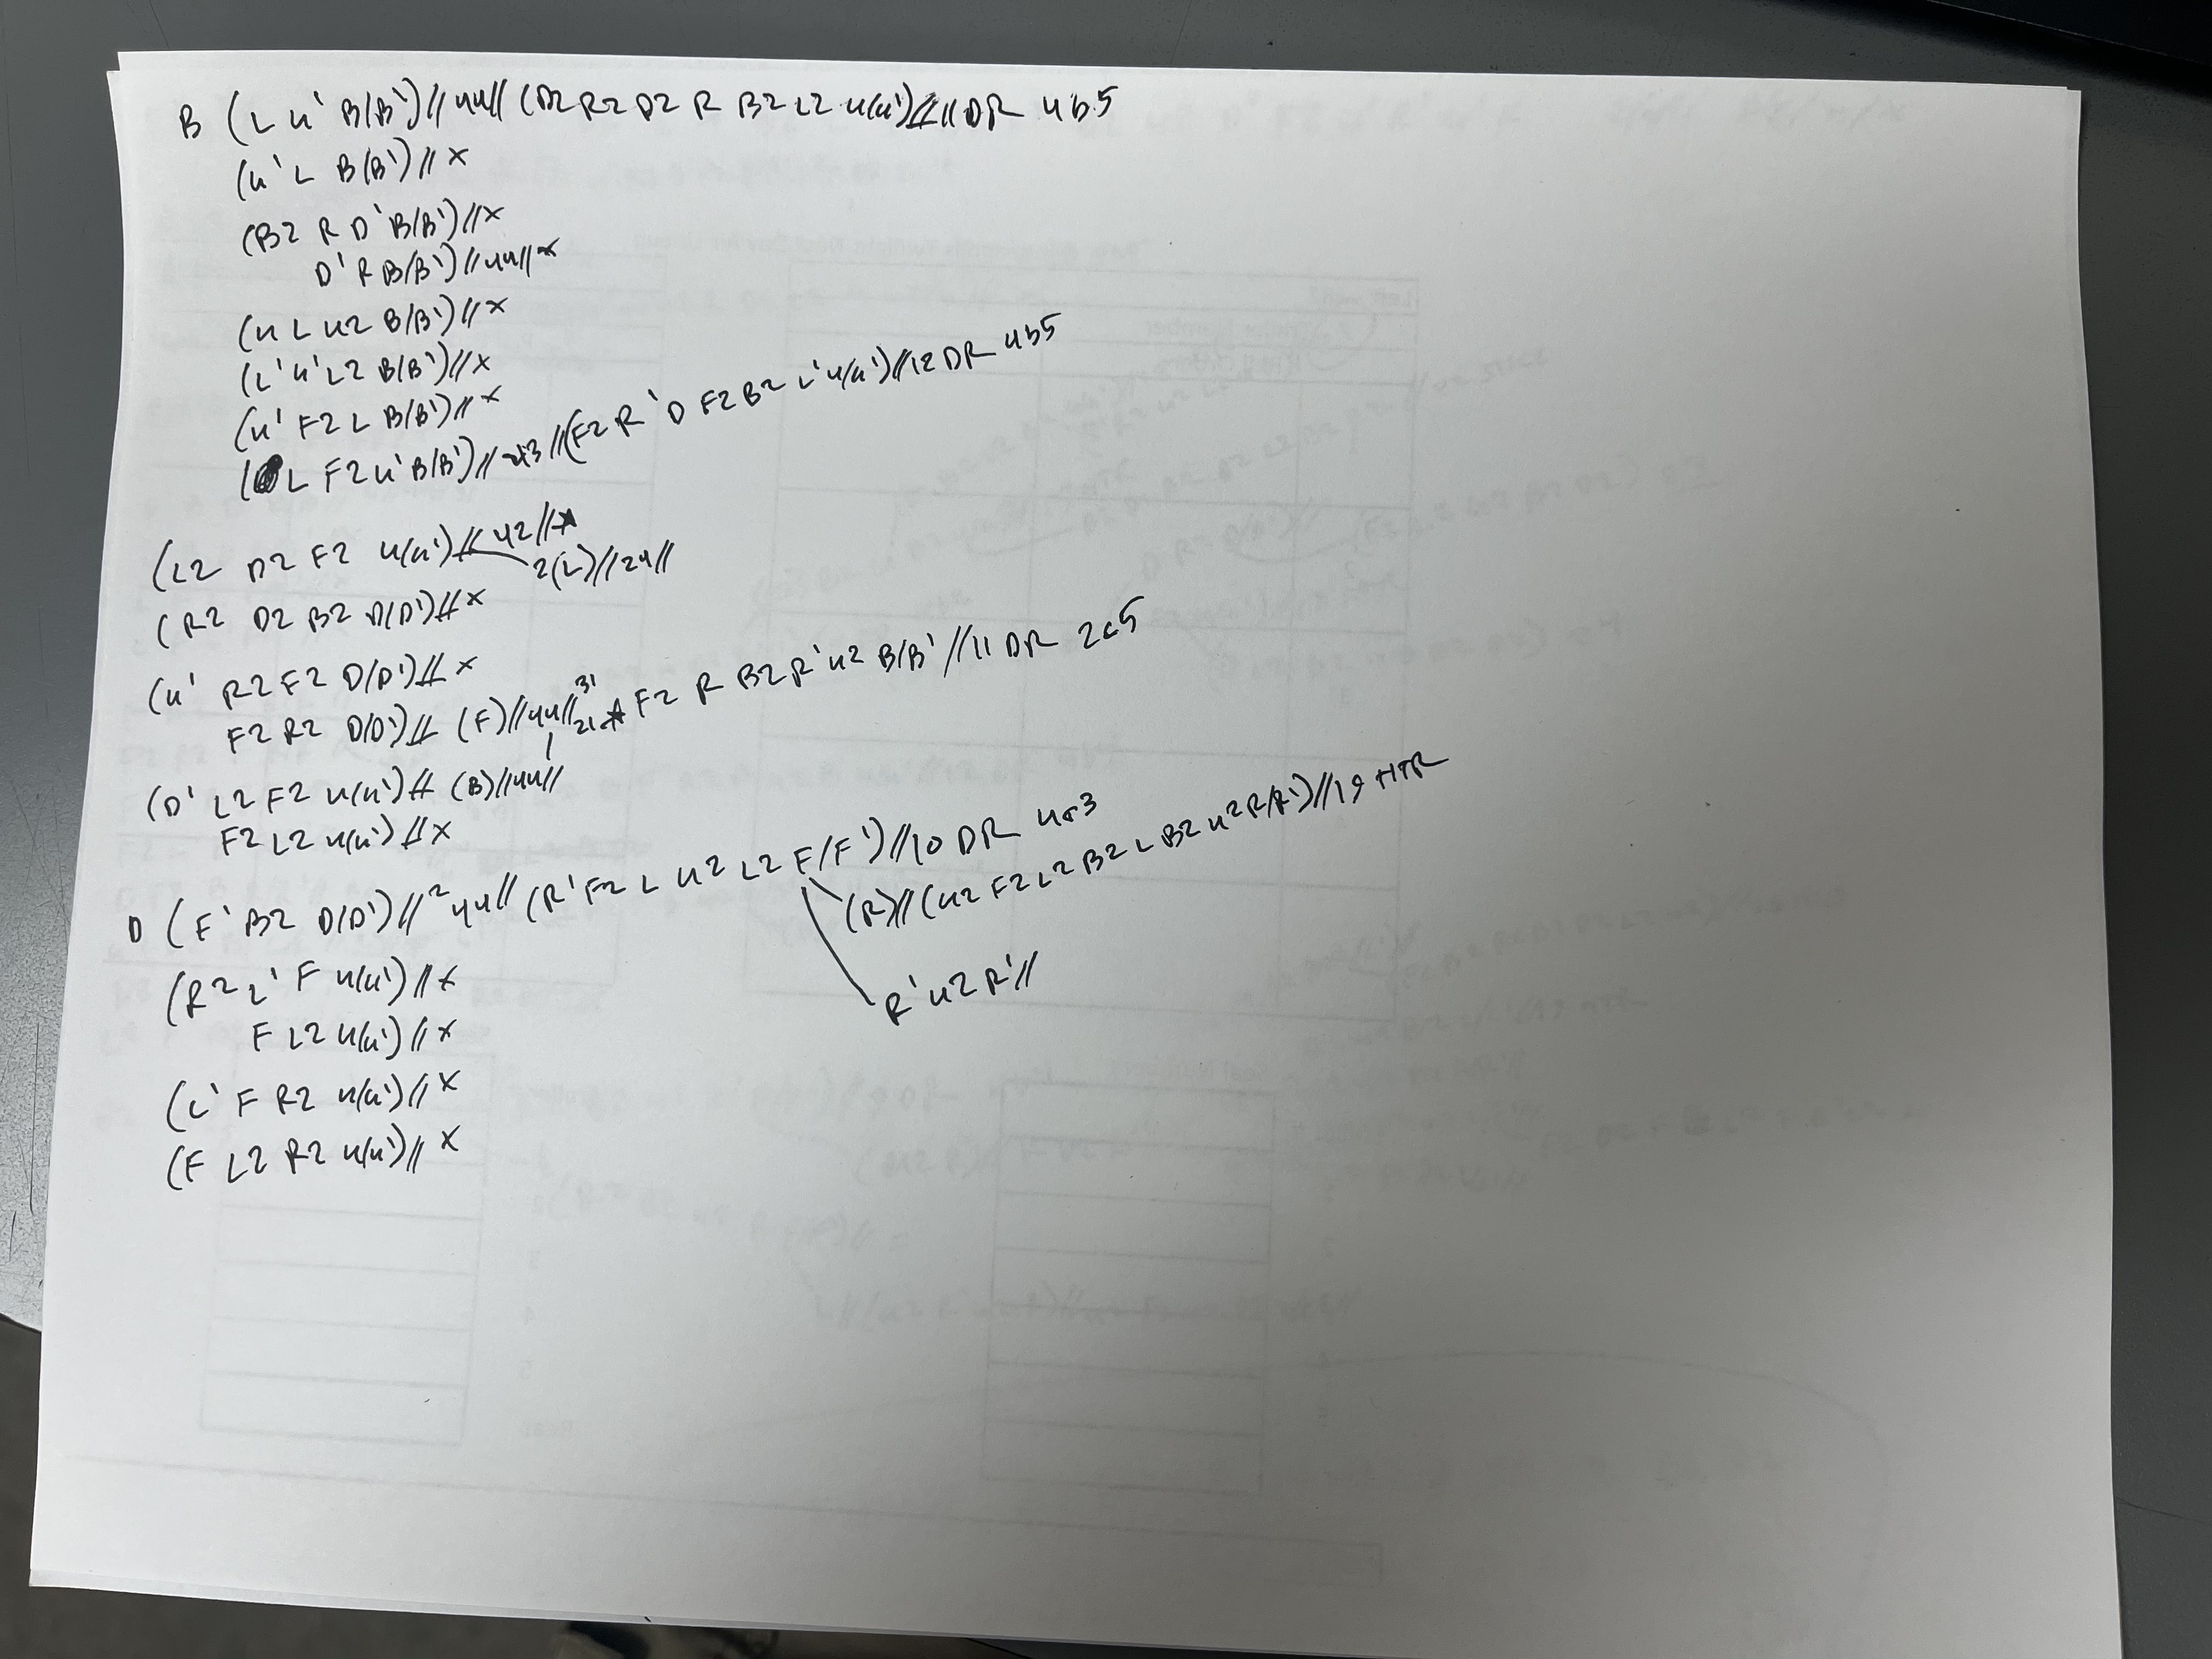 B (L u' B(B')//44// (D2 R2 D2 R B2 L2 u(u')//11 DR 4b5
(u' L B(B')//x
(B2 R D' B(B')//x
D' R B(B')//44//x
(u L u2 B(B')//x
(L' u' L2 B(B')//x
(u' F2 L B(B')//x
(L F2 u' B(B')// //(F2 R' D F2 B2 L' u(u')//12 DR 4b5
(L2 D2 F2 u(u')//42//x
2(L)//24//
(R2 D2 B2 D(D')//x
(u' R2 F2 D(D')//x
F2 R2 D(D')// (F)//44// 31 21 F2 R B2 R' u2 B(B' //11 DR 2c5
(D' L2 F2 u(u')// (B)//44//
F2 L2 u(u')//x
D (F' B2 D(D')//2 44// (R' F2 L u2 L2 F(F')//10 DR 4c3
(R)//(u2 F2 L2 B2 L B2 u2 R(R')//19 HTR
R' u2 R'//
(R2 L' F u(u')//x
F L2 u(u')//x
(L' F R2 u(u')//x
(F L2 R2 u(u')//x